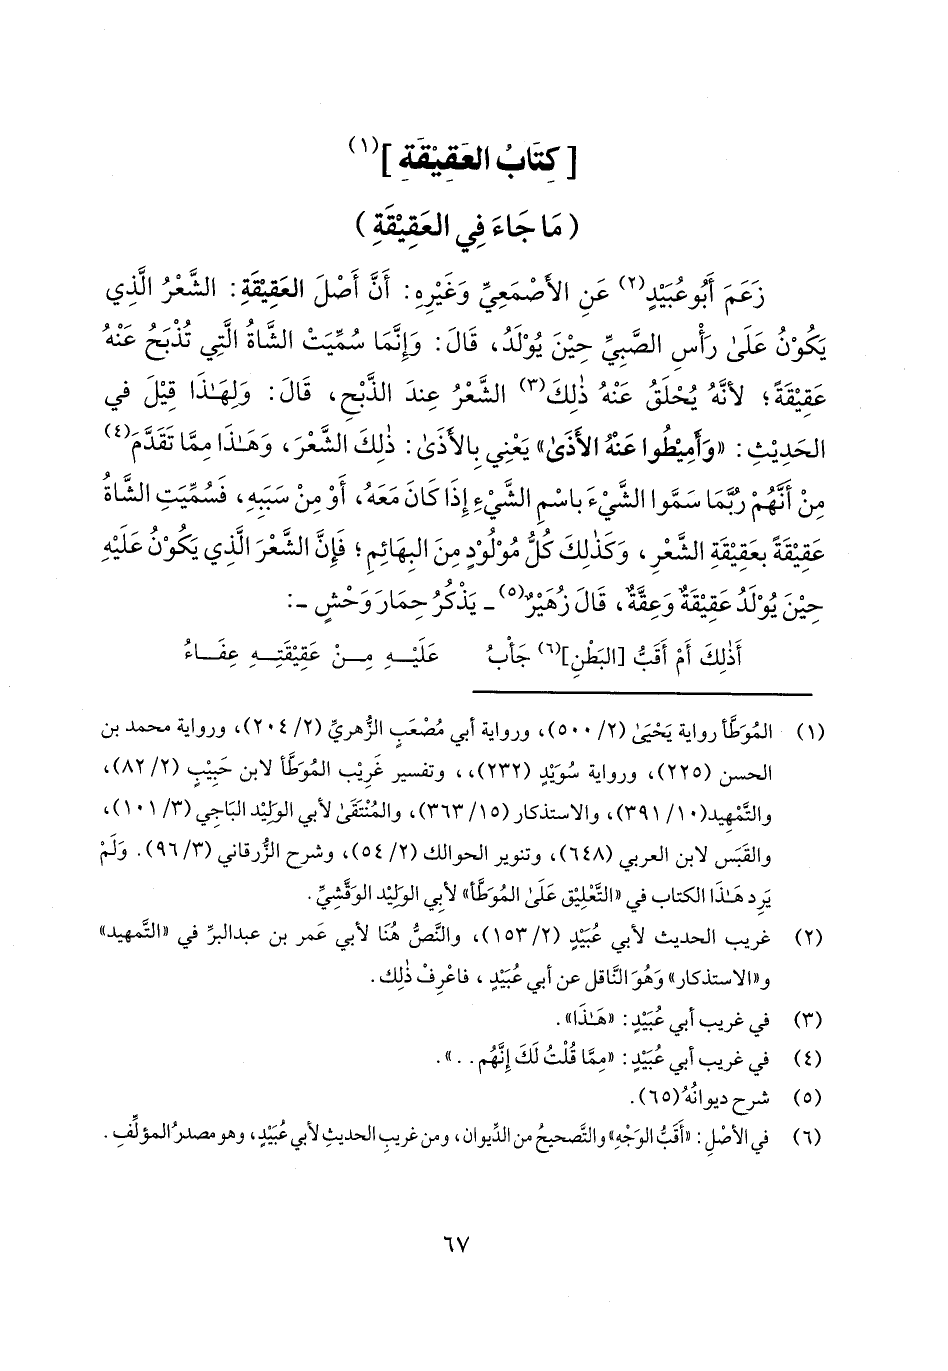 [كِتَابُ العَقِيْقَةِ](١)
(مَا جَاءَ فِي العَقِيْقَةِ)
زَعَمَ أَبُو عُبَيْدٍ(٢) عَنِ الأَصْمَعِيِّ وَغَيْرِهِ: أَنَّ أَصْلَ العَقِيْقَةِ: الشَّعْرُ الَّذِي
يَكُوْنُ عَلَىٰ رَأْسِ الصَّبِيِّ حِيْنَ يُوْلَدُ، قَالَ: وَإِنَّمَا سُمِّيَتْ الشَّاةُ الَّتِي تُذْبَحُ عَنْهُ
عَقِيْقَةً؛ لأَنَّهُ يُحْلَقُ عَنْهُ ذٰلِكَ(٣) الشَّعْرُ عِندَ الذَّبْحِ، قَالَ: وَلِهَـٰذَا قِيْلَ فِي
الحَدِيْثِ: «وَأَمِيْطُوا عَنْهُ الأَذَىٰ» يَعْنِي بِالأَذَىٰ: ذٰلِكَ الشَّعْرَ، وَهَـٰذَا مِمَّا تَقَدَّمَ(٤)
مِنْ أَنَّهُمْ رُبَّمَا سَمَّوا الشَّيْءَ بِاسْمِ الشَّيْءِ إِذَا كَانَ مَعَهُ، أَوْ مِنْ سَبَبِهِ، فَسُمِّيَتِ الشَّاةُ
عَقِيْقَةً بِعَقِيْقَةِ الشَّعْرِ، وَكَذٰلِكَ كُلُّ مُوْلُوْدٍ مِنَ البِهَائِمِ؛ فَإِنَّ الشَّعْرَ الَّذِي يَكُوْنُ عَلَيْهِ
حِيْنَ يُوْلَدُ عَقِيْقَةٌ وَعِقَّةٌ، قَالَ زُهَيْرٌ(٥) ـ يَذْكُرُ حِمَارَ وَحْشٍ ـ:
أَذٰلِكَ أَمْ أَقَبُّ [البَطْنِ](٦) جَأْبٌ عَلَيْهِ مِنْ عَقِيْقَتِهِ عِفَاءُ
(١) المُوَطَّأ رواية يَحْيَىٰ (٢/ ٥٠٠)، ورواية أبي مُصْعَبٍ الزُّهريِّ (٢/ ٢٠٤)، ورواية محمد بن
الحسن (٢٢٥)، ورواية سُوَيْدٍ (٢٣٢)،، وتفسير غَرِيْب المُوَطَّأ لابن حَبِيْبٍ (٢/ ٨٢)،
والتَّمْهِيد(١٠/ ٣٩١)، والاستذكار (١٥/ ٣٦٣)، والمُنْتَقَىٰ لأبي الوَلِيْد البَاجِي (٣/ ١٠١)،
والقَبَس لابن العربي (٦٤٨)، وتنوير الحوالك (٢/ ٥٤)، وشرح الزُّرقاني (٣/ ٩٦). وَلَمْ
يَرِد هَـٰذَا الكتاب في «التَّعْلِيْق عَلَىٰ المُوَطَّأ» لأَبِي الوَلِيْد الوَقَّشِيِّ.
(٢) غريب الحديث لأبي عُبَيْدٍ (٢/ ١٥٣)، والنَّصُّ هُنَا لأَبي عمر بن عبدالبرِّ في «التَّمهيد»
و«الاستذكار» وَهُوَ النَّاقل عن أبي عُبَيْدٍ، فَاعْرِفْ ذٰلِكَ.
(٣) في غريب أبي عُبَيْدٍ: «هَـٰذَا».
(٤) في غريب أبي عُبَيْدٍ: «مِمَّا قُلْتُ لَكَ إِنَّهُم . .».
(٥) شرح ديوانُهُ (٦٥).
(٦) في الأصْلِ: «أَقَبُّ الوَجْهِ» والتَّصحيحُ من الدِّيوان، ومن غريب الحديثِ لأبي عُبَيْدٍ، وهو مصدرُ المؤلِّفِ.
٦٧